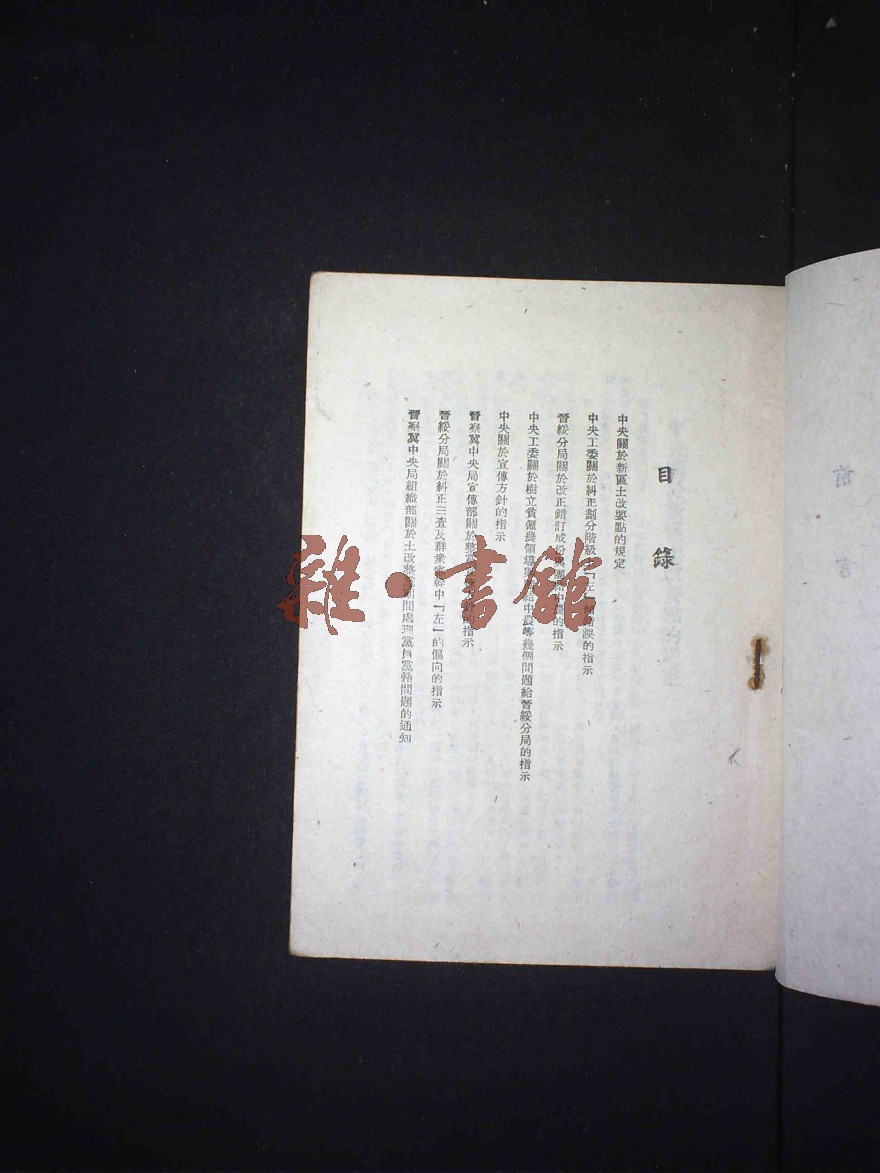 前言
目錄
中央關於新區土改要點的規定
中央工委關於糾正劃分階級「左」錯誤的指示
晉綏分局關於改正錯訂成份團結中農的指示
中央工委關於樹立貧僱農領導團結中農等幾個問題給晉綏分局的指示
中央關於宣傳方針的指示
晉察冀中央局宣傳部關於整黨的指示
晉綏分局關於糾正三查及群衆審幹中「左」的偏向的指示
晉察冀中央局組織部關於土改整黨期間處理黨員黨籍問題的通知
雜·書館